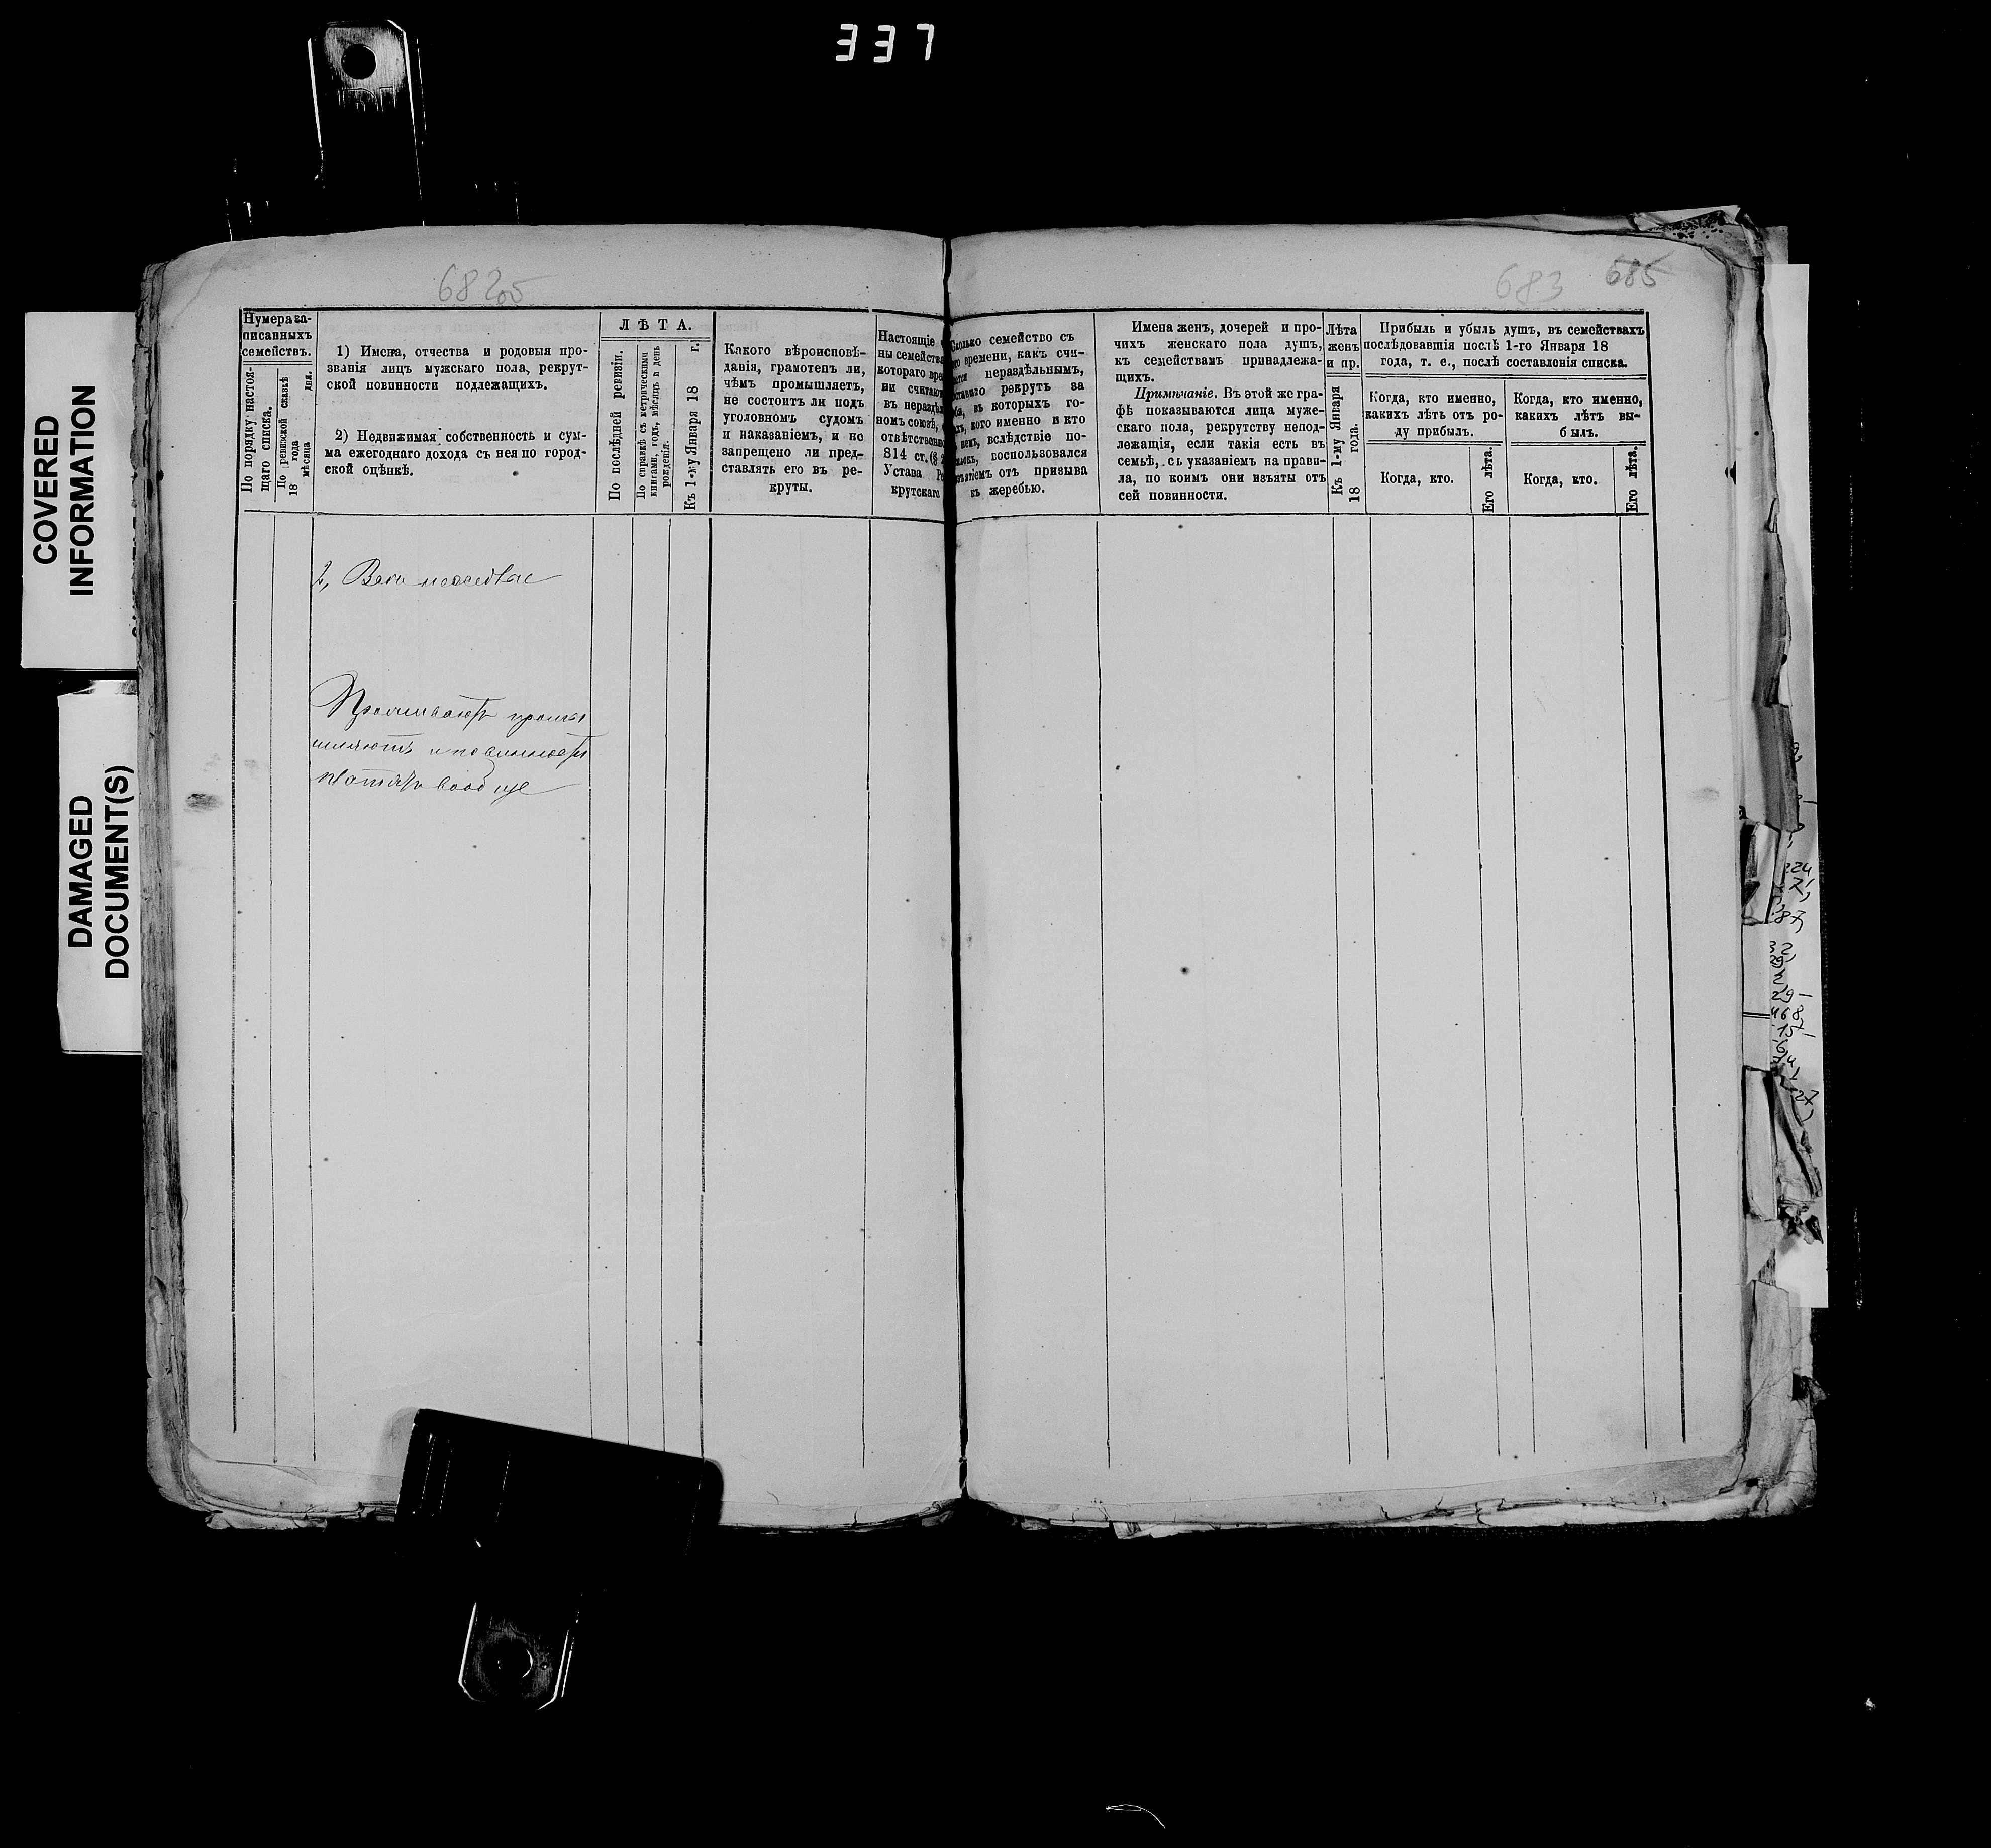 337
COVERED
INFORMATION
DAMAGED
DOCUMENT(S)
683
685
Нумера за-
писанныхъ
семействъ.
По порядку настоя-
щаго списка.
По ревизской сказкѣ
18 года
мѣсяца дня.
1) Имена, отчества и родовыя про-
званія лицъ мужскаго пола, рекрут-
ской повинности подлежащихъ.
2) Недвижимая собственность и сум-
ма ежегоднаго дохода съ нея по город-
ской оцѣнкѣ.
ЛѢТА.
По послѣдней ревизіи.
По справкѣ съ метрическими
книгами, годъ, мѣсяцъ и день
рожденія.
Къ 1-му Января 18 г.
Какого вѣроисповѣ-
данія, грамотенъ ли,
чѣмъ промышляетъ,
не состоитъ ли подъ
уголовномъ судомъ
и наказаніемъ, и не
запрещено ли пред-
ставлять его въ ре-
круты.
Настоящіе
ны семейства
котораго вре
ни считают
въ нераздѣл
номъ союзѣ,
отвѣтственно
814 ст. (§
Устава Ре
крутскаго
Сколько семейство съ
го времени, какъ счи-
тается нераздѣльнымъ,
ставило рекрутъ за
бя, въ которыхъ го-
дахъ, кого именно и кто
немъ, вслѣдствіе по-
воспользовался
изъятіемъ отъ призыва
къ жеребью.
Имена женъ, дочерей и про-
чихъ женскаго пола душъ,
къ семействамъ принадлежа-
щихъ.
Примѣчаніе. Въ этой же гра-
фѣ показываются лица муже-
скаго пола, рекрутству непод-
лежащія, если такія есть въ
семьѣ, съ указаніемъ на прави-
ла, по коимъ они изъяты отъ
сей повинности.
Лѣта
женъ
и пр.
Къ 1-му Января
18 года.
Прибыль и убыль душъ, въ семействахъ
послѣдовавшія послѣ 1-го Января 18
года, т. е., послѣ составленія списка.
Когда, кто именно,
какихъ лѣтъ отъ ро-
ду прибылъ.
Когда, кто.
Его лѣта.
Когда, кто именно,
какихъ лѣтъ вы-
былъ.
Когда, кто.
Его лѣта.
2,
Проживаютъ промы
шляютъ и повинности
платятъ вообще